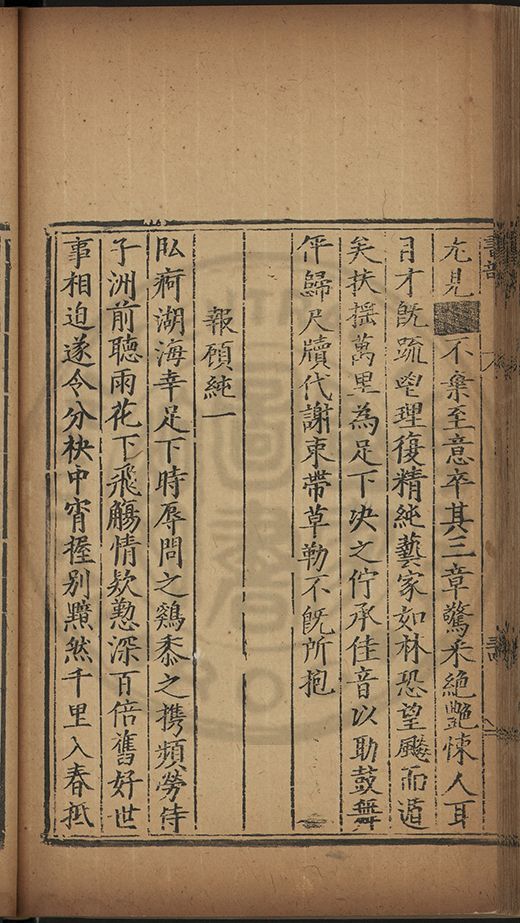 尢見不棄至意卒其三章驚采絕艷悚人耳
目才旣疏鬯理復精純藝家如林恐望飈而遁
矣扶搖萬里為足下决之佇承佳音以助鼓舞
伻歸尺牘代謝束帶草勒不旣所抱
報顧純一
臥痾湖海幸足下時辱問之鷄黍之携頻勞侍
子洲前聽雨花下飛觴情欵懃深百倍舊好世
事相迫遂令分袂中宵握別黯然千里入春抵